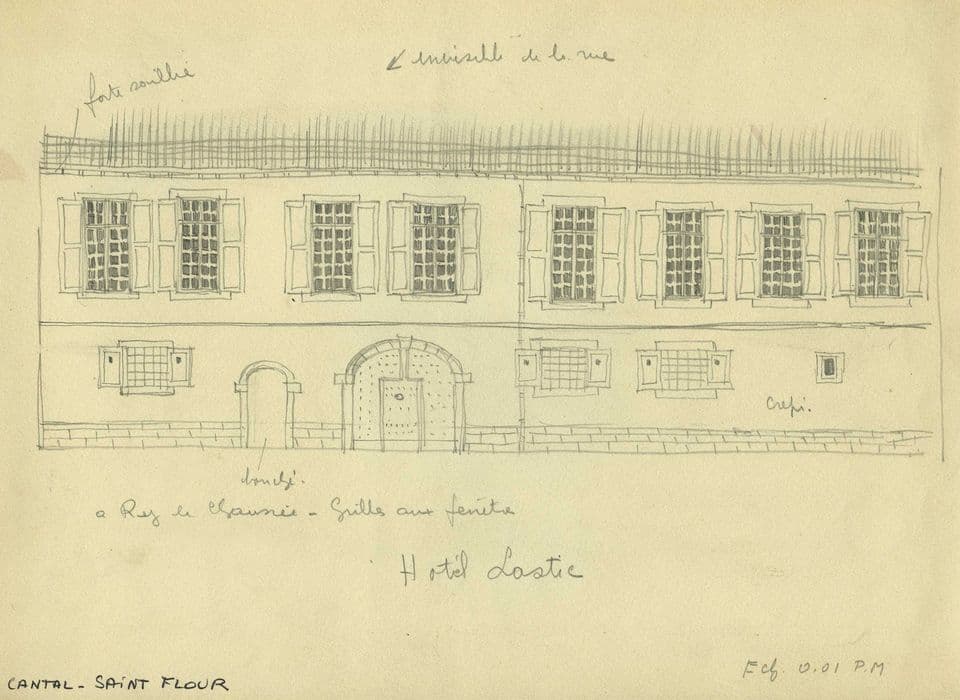 invisible de la rue
forte saillie
Crépi.
bouché.
a Rez de Chaussée - Grilles aux fenêtres
Hotel Lastic
CANTAL - SAINT FLOUR
Ech. 0.01 P.M